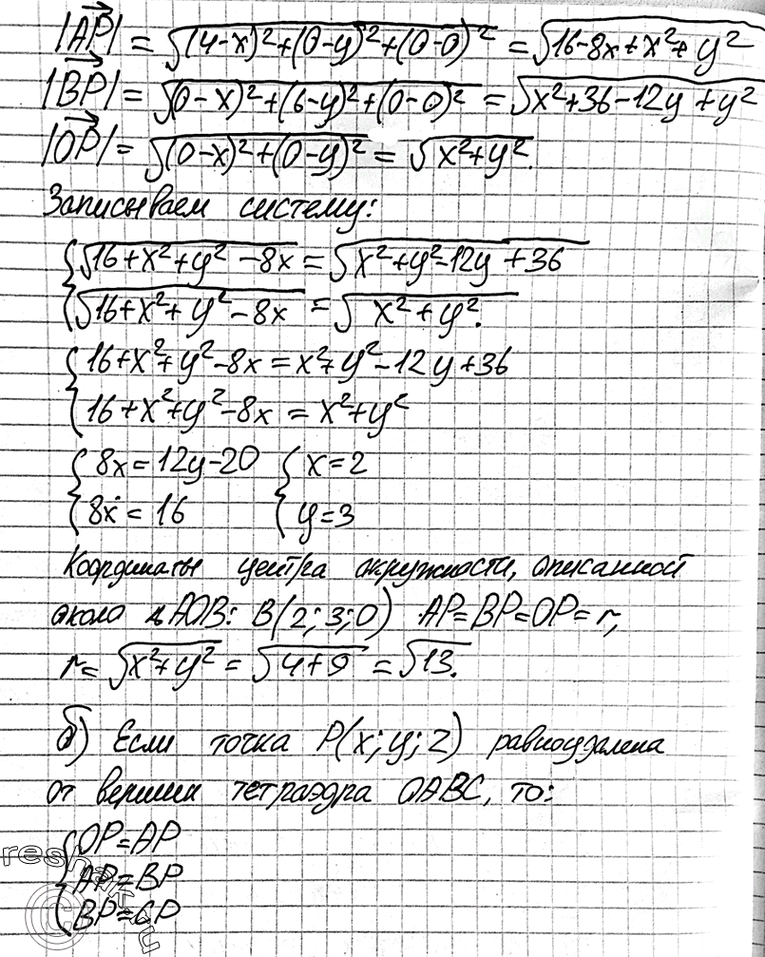 |AP| = √((4-x)²+(0-y)²+(0-0)²) = √(16-8x+x²+y²)
|BP| = √((0-x)²+(6-y)²+(0-0)²) = √(x²+36-12y+y²)
|OP| = √((0-x)²+(0-y)²) = √(x²+y²).
Записываем систему:
{√(16+x²+y²-8x) = √(x²+y²-12y+36)
{√(16+x²+y²-8x) = √(x²+y²).
{16+x²+y²-8x = x²+y²-12y+36
{16+x²+y²-8x = x²+y²
{8x=12y-20 {x=2
{8x=16 {y=3
Координаты центра окружности, описанной
около △AOB: B(2;3;0) AP=BP=OP=r,
r= √(x²+y²) = √(4+9) = √13.
б) Если точка P(x;y;z) равноудалена
от вершин тетраэдра OABC, то:
{OP=AP
{AP=BP
{BP=CP
reshak.ru